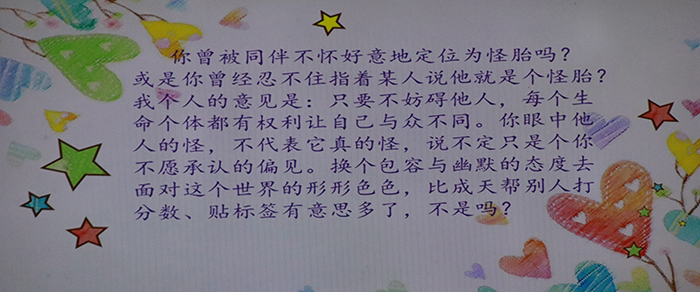 你曾被同伴不怀好意地定位为怪胎吗?
或是你曾经忍不住指着某人说他就是个怪胎?
我个人的意见是：只要不妨碍他人，每个生
命个体都有权利让自己与众不同。你眼中他
人的怪，不代表它真的怪，说不定只是个你
不愿承认的偏见。换个包容与幽默的态度去
面对这个世界的形形色色，比成天帮别人打
分数、贴标签有意思多了，不是吗?